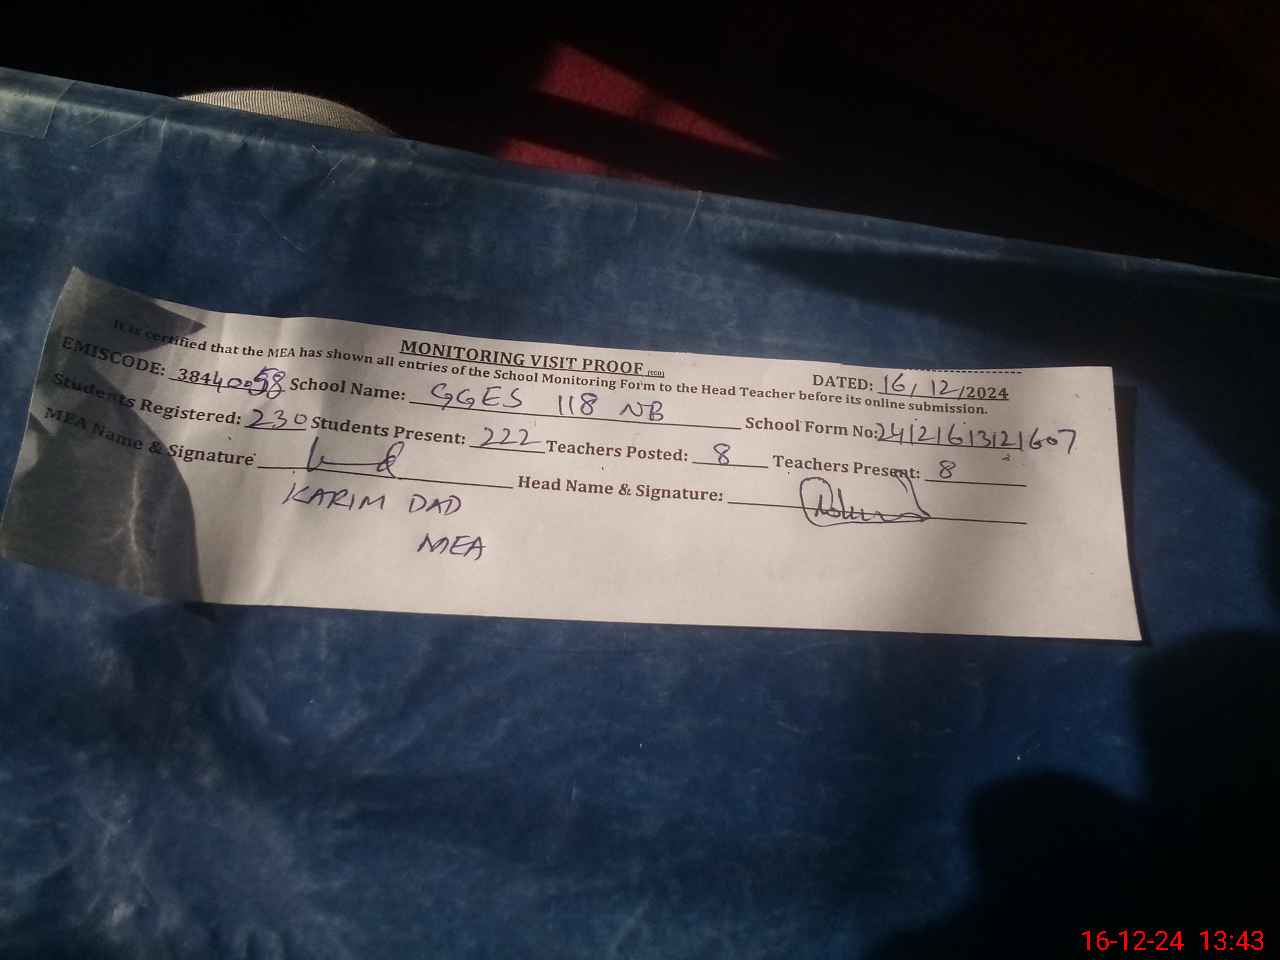 MONITORING VISIT PROOF
DATED: 16/12/2024
It is certified that the MEA has shown all entries of the School Monitoring Form to the Head Teacher before its online submission.
EMISCODE: 38440058 School Name: GGES 118 NB School Form No:
Students Registered: 230 Students Present: 222 Teachers Posted: 8 Teachers Present: 8
MEA Name & Signature Head Name & Signature:
KARIM DAD
MEA
16-12-24 13:43